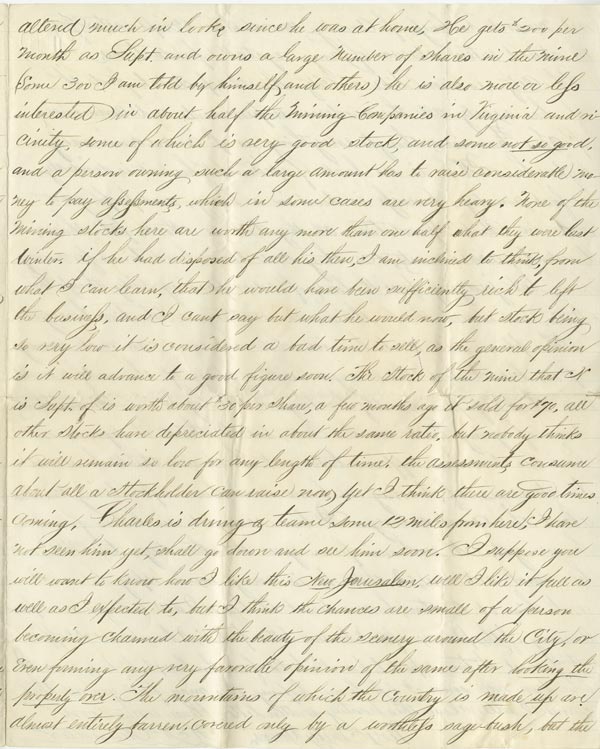 altered much in looks since he was at home, He gets $200 per
month as Supt. and owns a large number of shares in the mine
(some 300 I am told by himself, and others) he is also more or less
interested in about half the Mining Companies in Virginia and vi-
cinity, some of which is very good stock, and some not so good,
and a person owning such a large amount has to raise considerable mo-
ney to pay assessments, which in some cases are very heavy. None of the
mining stocks here are worth any more than one half what they were last
Winter. if he had disposed of all his then, I am inclined to think, from
what I can learn, that he would have been sufficiently rich to left
the business, and I cant say but what he would now, but stock being
so very low it is considered a bad time to sell, as the general opinion
is it will advance to a good figure soon. The Stock of the mine that N
is Supt. of is worth about $30 per share, a few months ago it sold for $70, all
other stocks have depreciated in about the same ratio, but nobody thinks
it will remain so low for any length of time. the assessments consume
about all a Stockholder can raise now, yet I think there are good times
coming. Charles is driving a team some 12 miles from here, I have
not seen him yet, shall go down and see him soon. I suppose you
will want to know how I like this New Jerusalem, well I like it full as
well as I expected to, but I think the chances are small of a person
becoming charmed with the beauty of the scenery around the City, or
even forming any very favorable opinion of the same after looking the
property over. The mountains of which the Country is made up are
almost entirely barren, covered only by a worthless sage-bush, but the